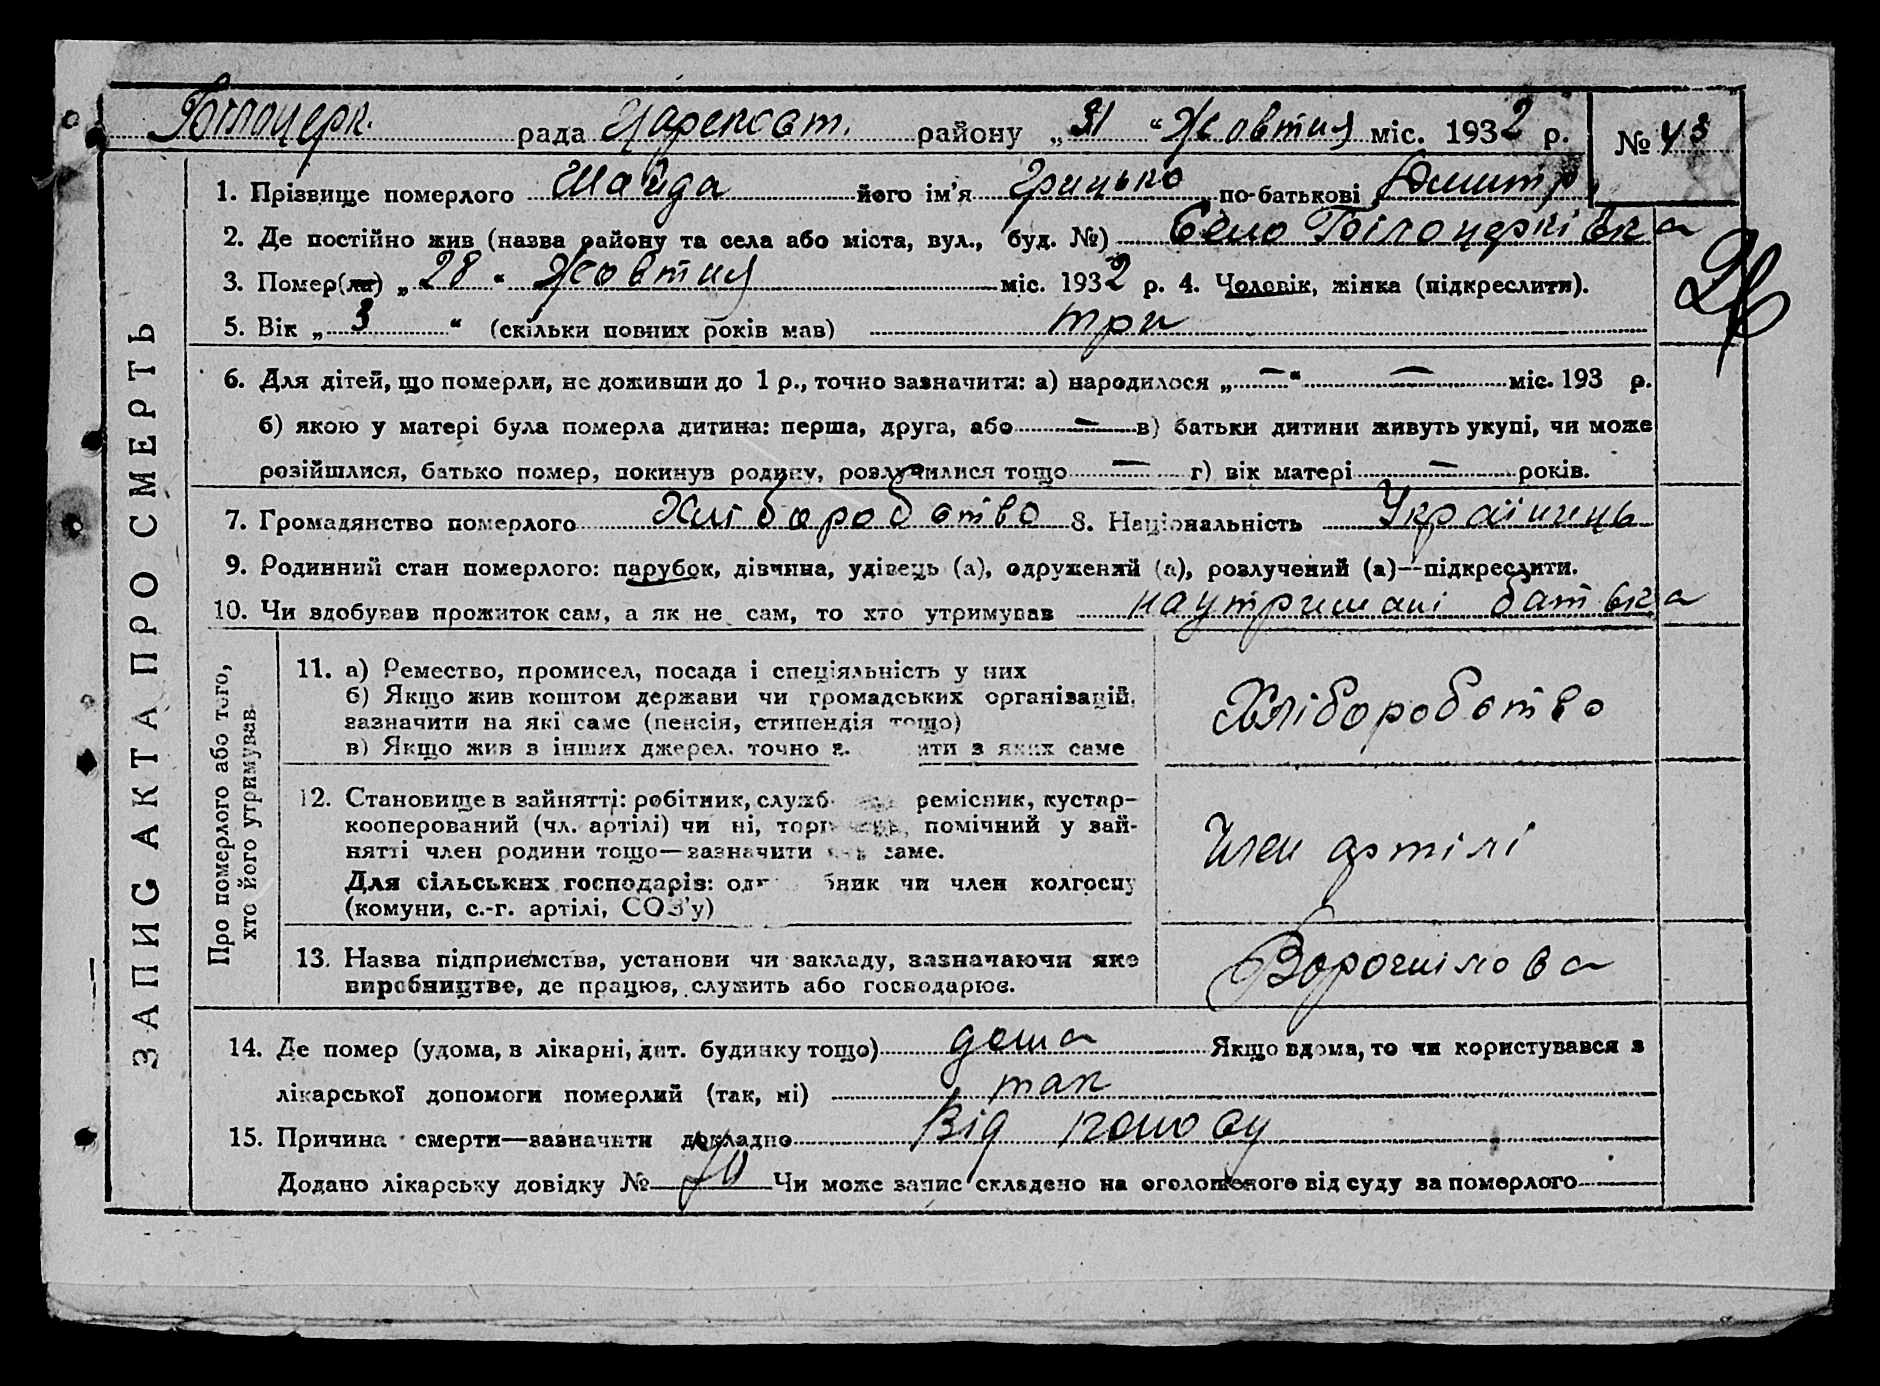 Білоцерк. рада Царекост. району „31“ Жовтня міс. 1932 р. № 43
ЗАПИС АКТА ПРО СМЕРТЬ
1. Прізвище померлого Шайда його ім'я Грицько по-батькові Дмитр.
2. Де постійно жив (назва району та села або міста, вул., буд. №) Село Білоцерківка
3. Помер(ла) „28“ Жовтня міс. 1932 р. 4. Чоловік, жінка (підкреслити).
5. Вік „3“ (скільки повних років мав) три
6. Для дітей, що померли, не доживши до 1 р., точно зазначити: а) народилося „—“ — міс. 193 р.
б) якою у матері була померла дитина: перша, друга, або — в) батьки дитини живуть укупі, чи може
розійшлися, батько помер, покинув родину, розлучилися тощо — г) вік матері — років.
7. Громадянство померлого Хліборобство 8. Національність Українець
9. Родинний стан померлого: парубок, дівчина, удівець (а), одружений (а), розлучений (а)—підкреслити.
10. Чи здобував прожиток сам, а як не сам, то хто утримував на утримані батька
Про померлого або того,
хто його утримував
11. а) Ремество, промисел, посада і спеціяльність у них
б) Якщо жив коштом держави чи громадських організацій,
зазначити на які саме (пенсія, стипендія тощо)
в) Якщо жив з інших джерел, точно з. ити з яких саме
Хліборобство
12. Становище в зайнятті: робітник, служб ремісник, кустар-
кооперований (чл. артілі) чи ні, торг помічний у зай-
нятті член родини тощо—зазначити саме.
Для сільських господарів: од бник чи член колгоспу
(комуни, с.-г. артілі, СОЗ'у)
Член артілі
13. Назва підприємства, установи чи закладу, зазначаючи яке
виробництво, де працює, служить або господарює.
Ворошилова
14. Де помер (удома, в лікарні, дит. будинку тощо) дома Якщо вдома, то чи користувався з
лікарської допомоги померлий (так, ні) так
15. Причина смерти—зазначити докладно Від
Додано лікарську довідку № Чи може запис складено на оголошеного від суду за померлого